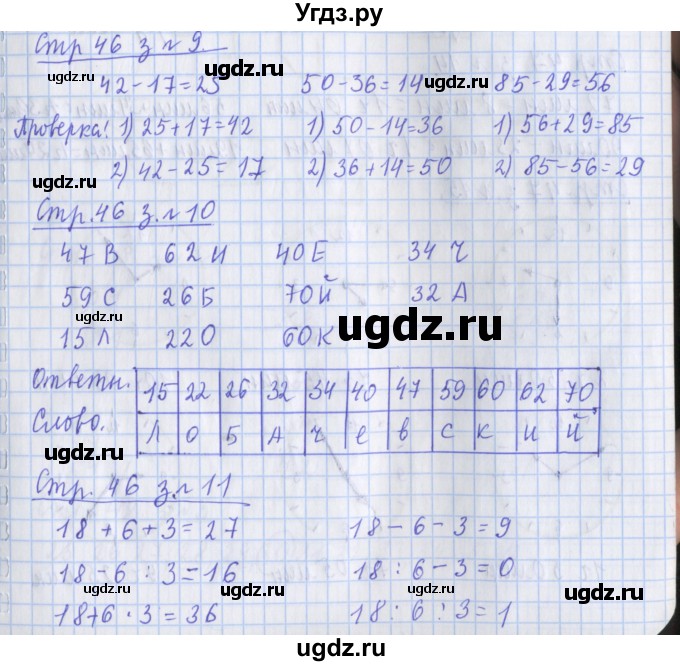 Угдз.ру
Стр 46 з № 9.
ugdz.ru ugdz.ru ugdz.ru
42-17=25 50-36=14 85-29=56
Проверка! 1) 25+17=42 1) 50-14=36 1) 56+29=85
2) 42-25=17 2) 36+14=50 2) 85-56=29
ugdz.ru
Стр. 46 з. № 10
47 В 62 И 40 Е 34 Ч
59 С 26 Б 70 Й 32 А
ugdz.ru
15 Л 22 О 60 К
ugdz.ru
Ответы. 15 22 26 32 34 40 47 59 60 62 70
Слово. Л О Б А Ч е в с к и й
ugdz.ru
Стр. 46 з. № 11
18 + 6 + 3 = 27 18 - 6 - 3 = 9
18 - 6 : 3 = 16 18 : 6 - 3 = 0
ugdz.ru ugdz.ru
18+6 · 3 = 36 18 : 6 : 3 = 1
ugdz.ru